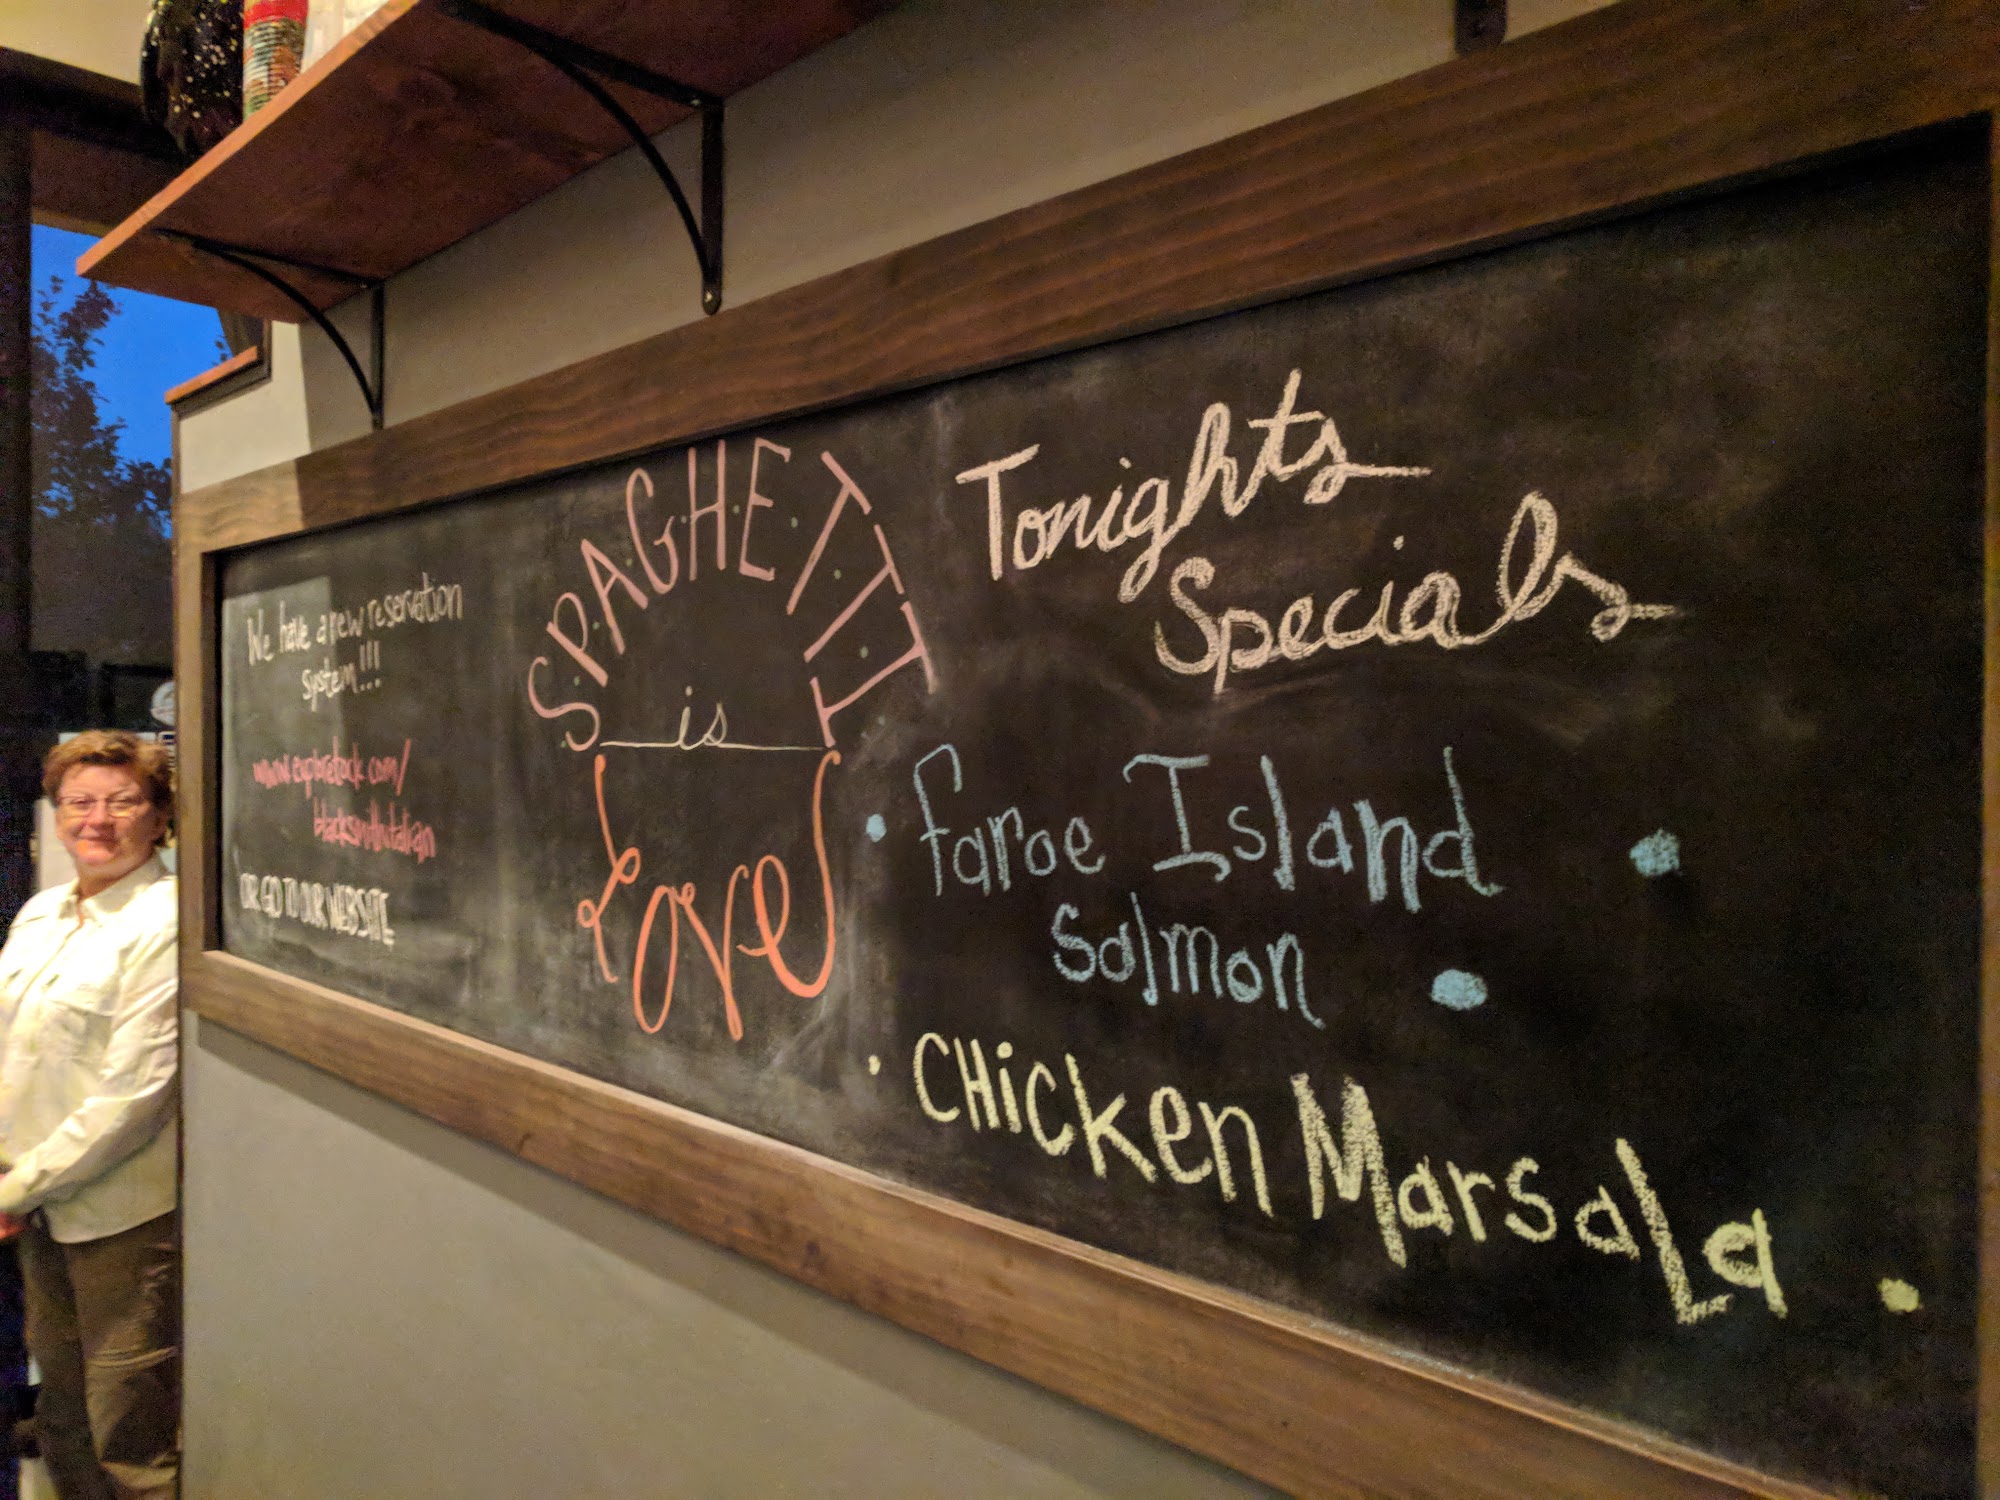 We have a new reservation
system!!!
www.exploretock.com/
blacksmithitalian
OR GO TO OUR WEBSITE
SPAGHETTI
is
Love
Tonights
Specials
• Faroe Island
Salmon
• CHicken MarsaLa